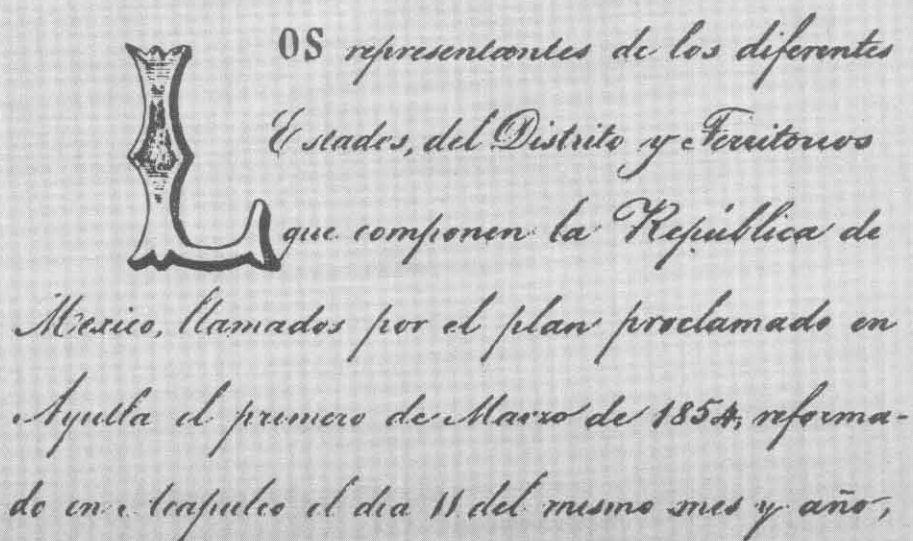 LOS representantes de los diferentes
Estados, del Distrito y Territorios
que componen la República de
Mexico, llamados por el plan proclamado en
Ayutla el primero de Marzo de 1854, reforma-
do en Acapulco el dia 11 del mismo mes y año,